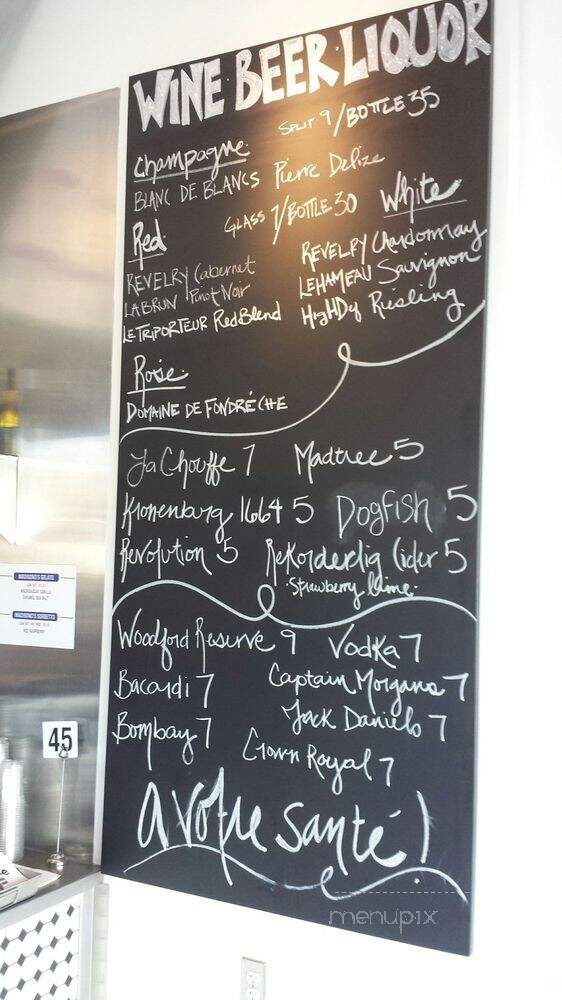 WINE BEER LIQUOR
Champagne SPLIT 9/BOTTLE 35
BLANC DE BLANCS Pierre Delize
Red GLASS 7/BOTTLE 30
REVELRY Cabernet
LABRUN Pinot Noir
LE TRIPORTEUR Red Blend
White
REVELRY Chardonnay
LEHAMEAU Sauvignon
HighDef Riesling
Rosé
DOMAINE DE FONDRÉCHE
La Chouffe 7 Madtree 5
Kronenburg 1664 5 DOGFISH 5
Revolution 5 Rekorderlig Cider 5
Strawberry Lime
Woodford Reserve 9 Vodka 7
Bacardi 7 Captain Morgans 7
Bombay 7 Jack Daniels 7
Crown Royal 7
a votre santé!
MADISONO'S GELATO
MADISONO'S SORBETTO
RED RASPBERRY
45
menupix